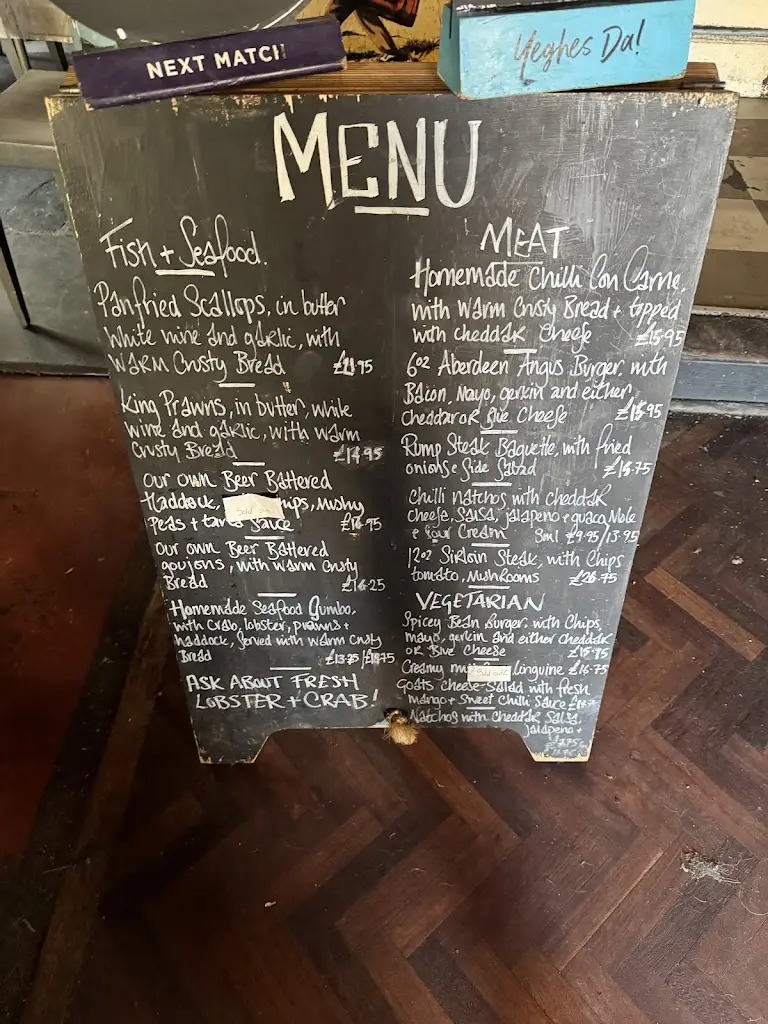 NEXT MATCH
Yeghes Da!
MENU
Fish + Seafood.
Panfried Scallops, in butter
White wine and garlic, with
Warm Crusty Bread
King Prawns, in butter, white
wine and garlic, with warm
Crusty Bread £14.95
Our own Beer Battered
Haddock, mushy
Peas + Sauce
Sold out
Our own Beer Battered
goujons, with warm Crusty
Bread
Homemade Seafood Gumbo,
with crab, lobster, prawns +
haddock, served with warm Crusty
Bread
ASK ABOUT FRESH
LOBSTER + CRAB!
MEAT
Homemade Chilli Con Carne,
with warm Crusty Bread + topped
with cheddar Cheese £15.95
6oz Aberdeen Angus Burger, with
Bacon, Mayo, gerkin and either
cheddar or Blue Cheese £15.95
Rump Steak Baguette, with fried
onions & Side Salad
Chilli natchos with cheddar
cheese, Salsa, jalapeno + guaca Mole
& Sour Cream Sml £9.95/13.95
12oz Sirloin Steak, with Chips
tomato, Mushrooms £26.75
VEGETARIAN
Spicey Bean Burger, with Chips,
mayo, gerkin and either cheddar
or Blue Cheese £15.95
Creamy linguine £16.75
Sold out
Goats cheese Salad with fresh
mango + Sweet Chilli Sauce
Natchos with cheddar Salsa,
jalapeno +